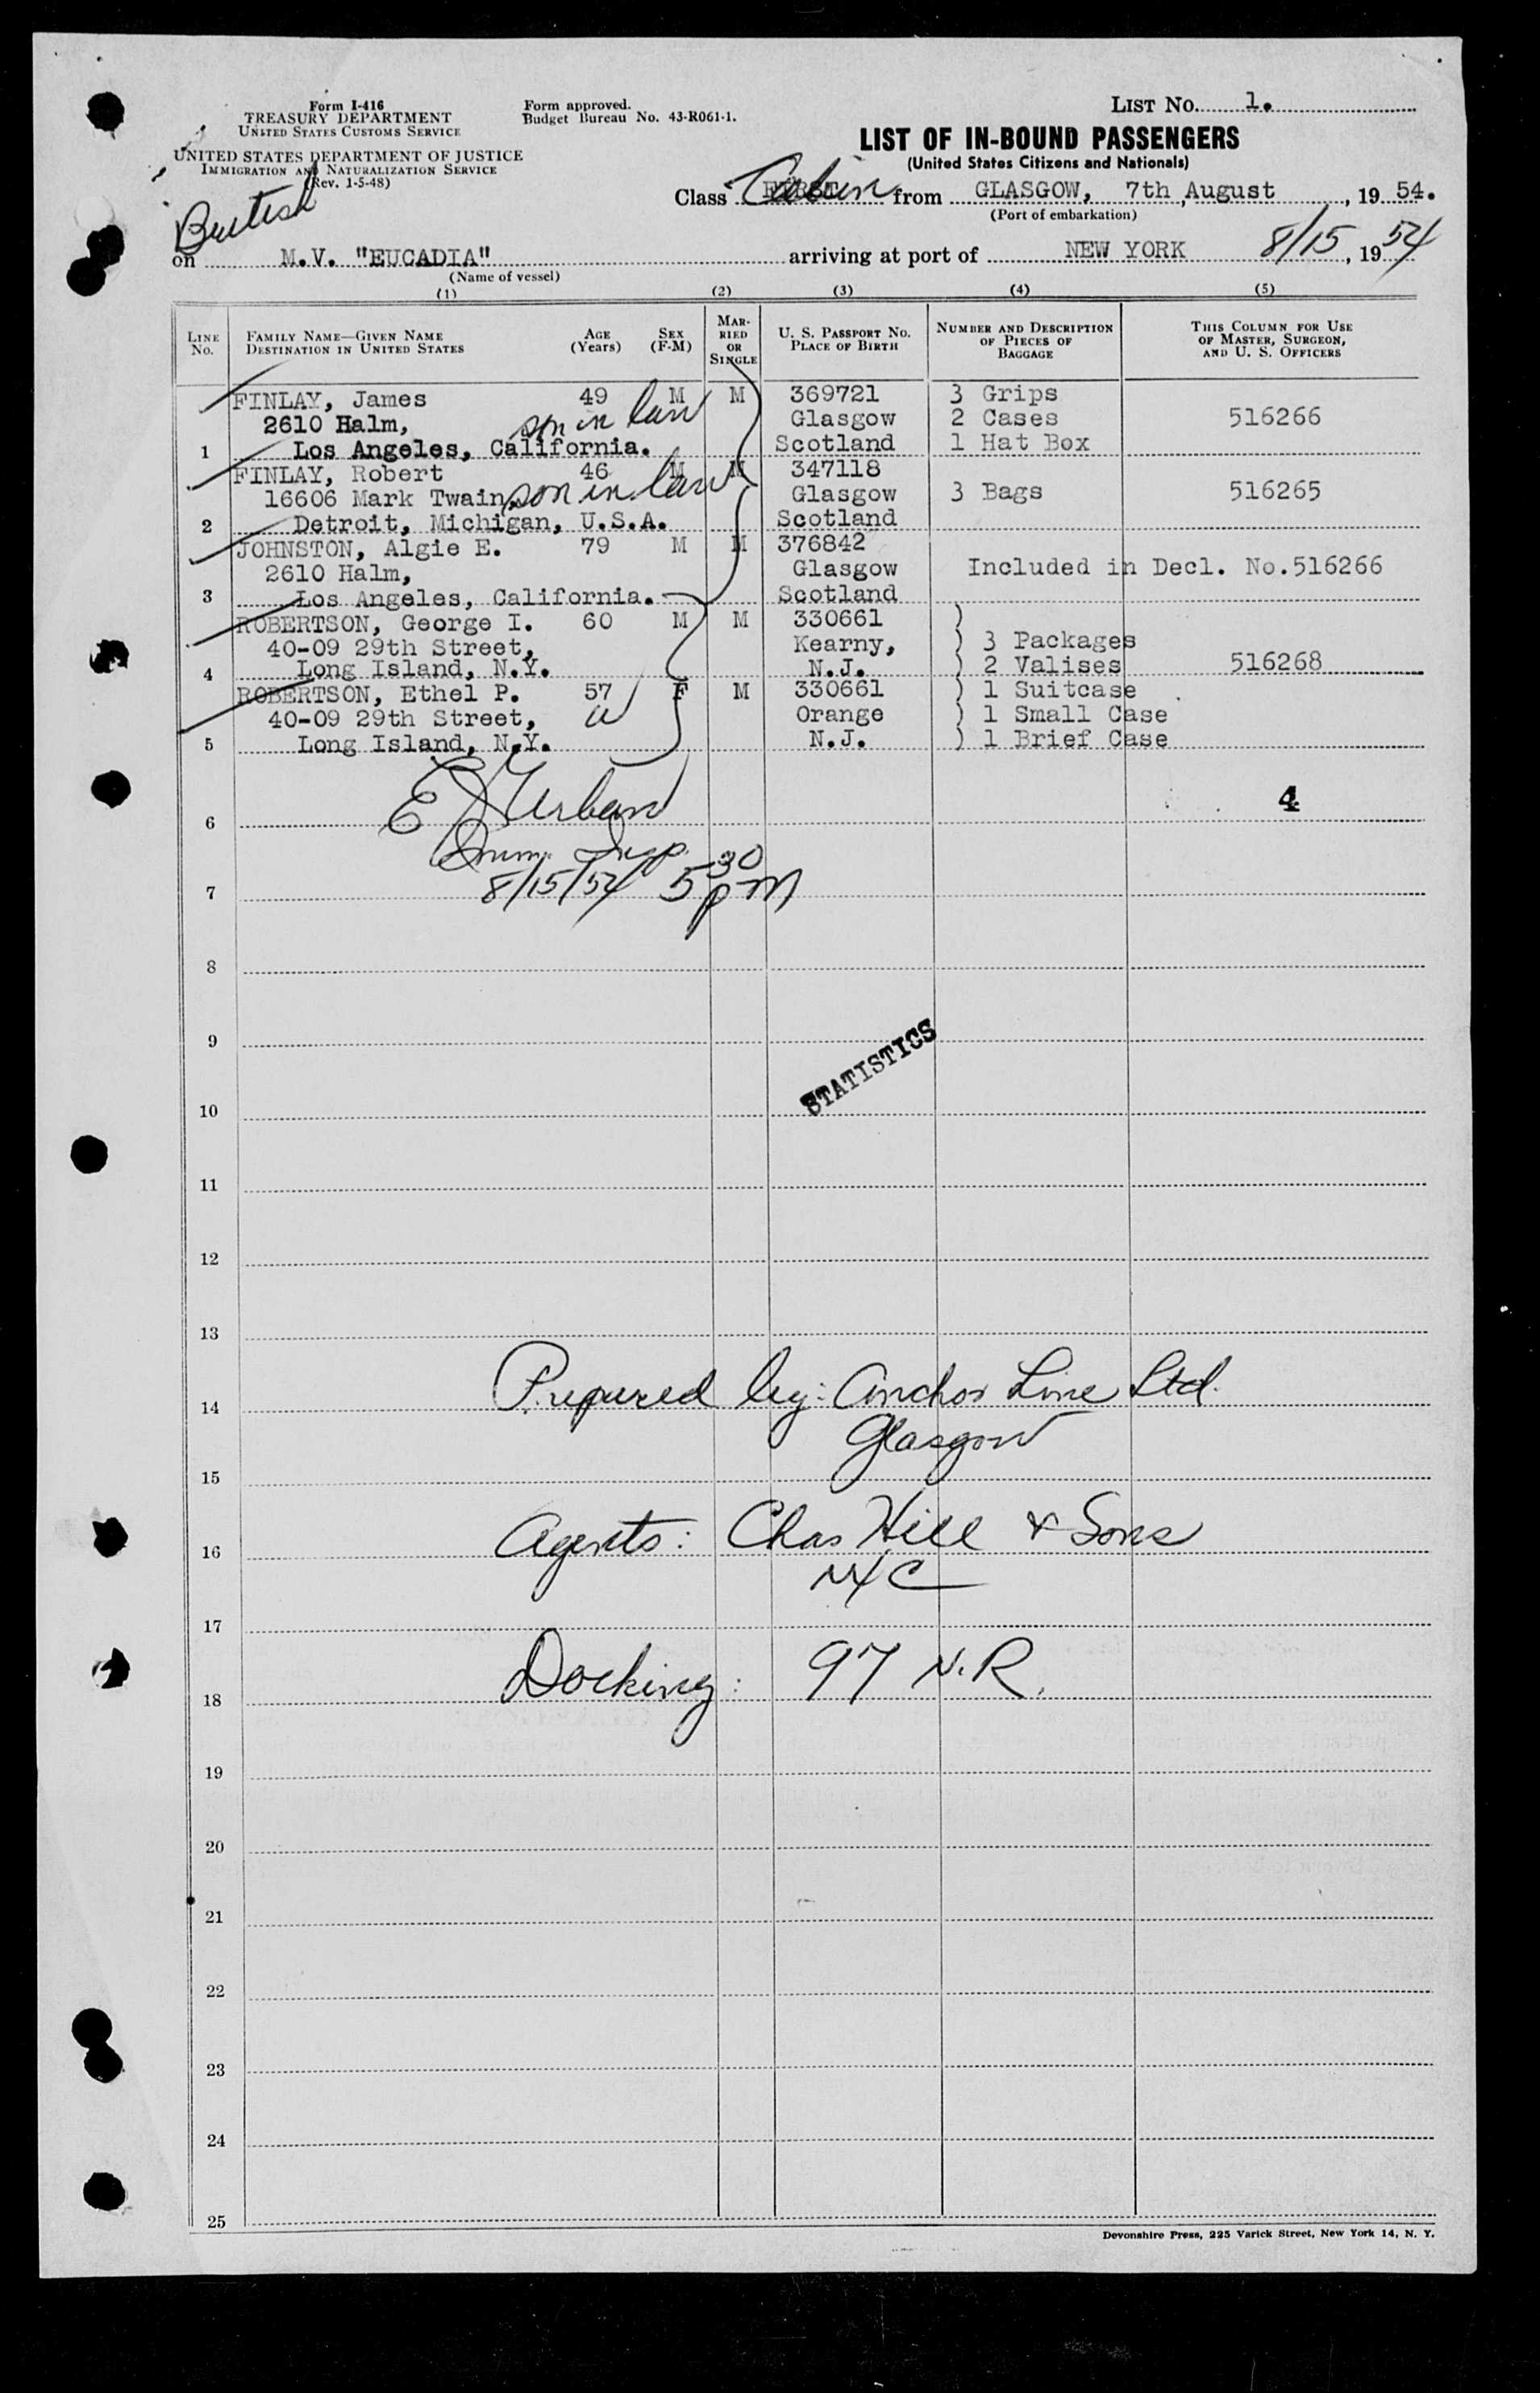 Form I-416
TREASURY DEPARTMENT
UNITED STATES CUSTOMS SERVICE
UNITED STATES DEPARTMENT OF JUSTICE
IMMIGRATION AND NATURALIZATION SERVICE
(Rev. 1-5-48)
Form approved.
Budget Bureau No. 43-R061-1.
LIST NO. 1.
LIST OF IN-BOUND PASSENGERS
(United States Citizens and Nationals)
British
Class FIRST Cabin from GLASGOW, 7th August, 1954.
(Port of embarkation)
on M.V. "EUCADIA" arriving at port of NEW YORK 8/15, 1954
(Name of vessel)
(1) (2) (3) (4) (5)
LINE No.
FAMILY NAME—GIVEN NAME
DESTINATION IN UNITED STATES
AGE (Years)
SEX (F-M)
MARRIED OR SINGLE
U. S. PASSPORT NO.
PLACE OF BIRTH
NUMBER AND DESCRIPTION OF PIECES OF BAGGAGE
THIS COLUMN FOR USE OF MASTER, SURGEON, AND U. S. OFFICERS
FINLAY, James 49 M M 369721 3 Grips
2610 Halm, son in law Glasgow 2 Cases 516266
1 Los Angeles, California. Scotland 1 Hat Box
FINLAY, Robert 46 M M 347118
16606 Mark Twain, son in law Glasgow 3 Bags 516265
2 Detroit, Michigan, U.S.A. Scotland
JOHNSTON, Algie E. 79 M M 376842
2610 Halm, Glasgow Included in Decl. No.516266
3 Los Angeles, California. Scotland
ROBERTSON, George I. 60 M M 330661 )
40-09 29th Street, Kearny, ) 3 Packages
4 Long Island, N.Y. N.J. ) 2 Valises 516268
ROBERTSON, Ethel P. 57 F M 330661 ) 1 Suitcase
40-09 29th Street, W Orange ) 1 Small Case
5 Long Island, N.Y. N.J. ) 1 Brief Case
E Urban
4
6
Imm. Insp.
8/15/54 5 30 pm
7
8
9
STATISTICS
10
11
12
13
Prepared by: Anchor Line Ltd.
14
Glasgow
15
Agents: Chas Hill & Sons
16
NYC
17
Docking: 97 N.R.
18
19
20
21
22
23
24
25
Devonshire Press, 225 Varick Street, New York 14, N. Y.